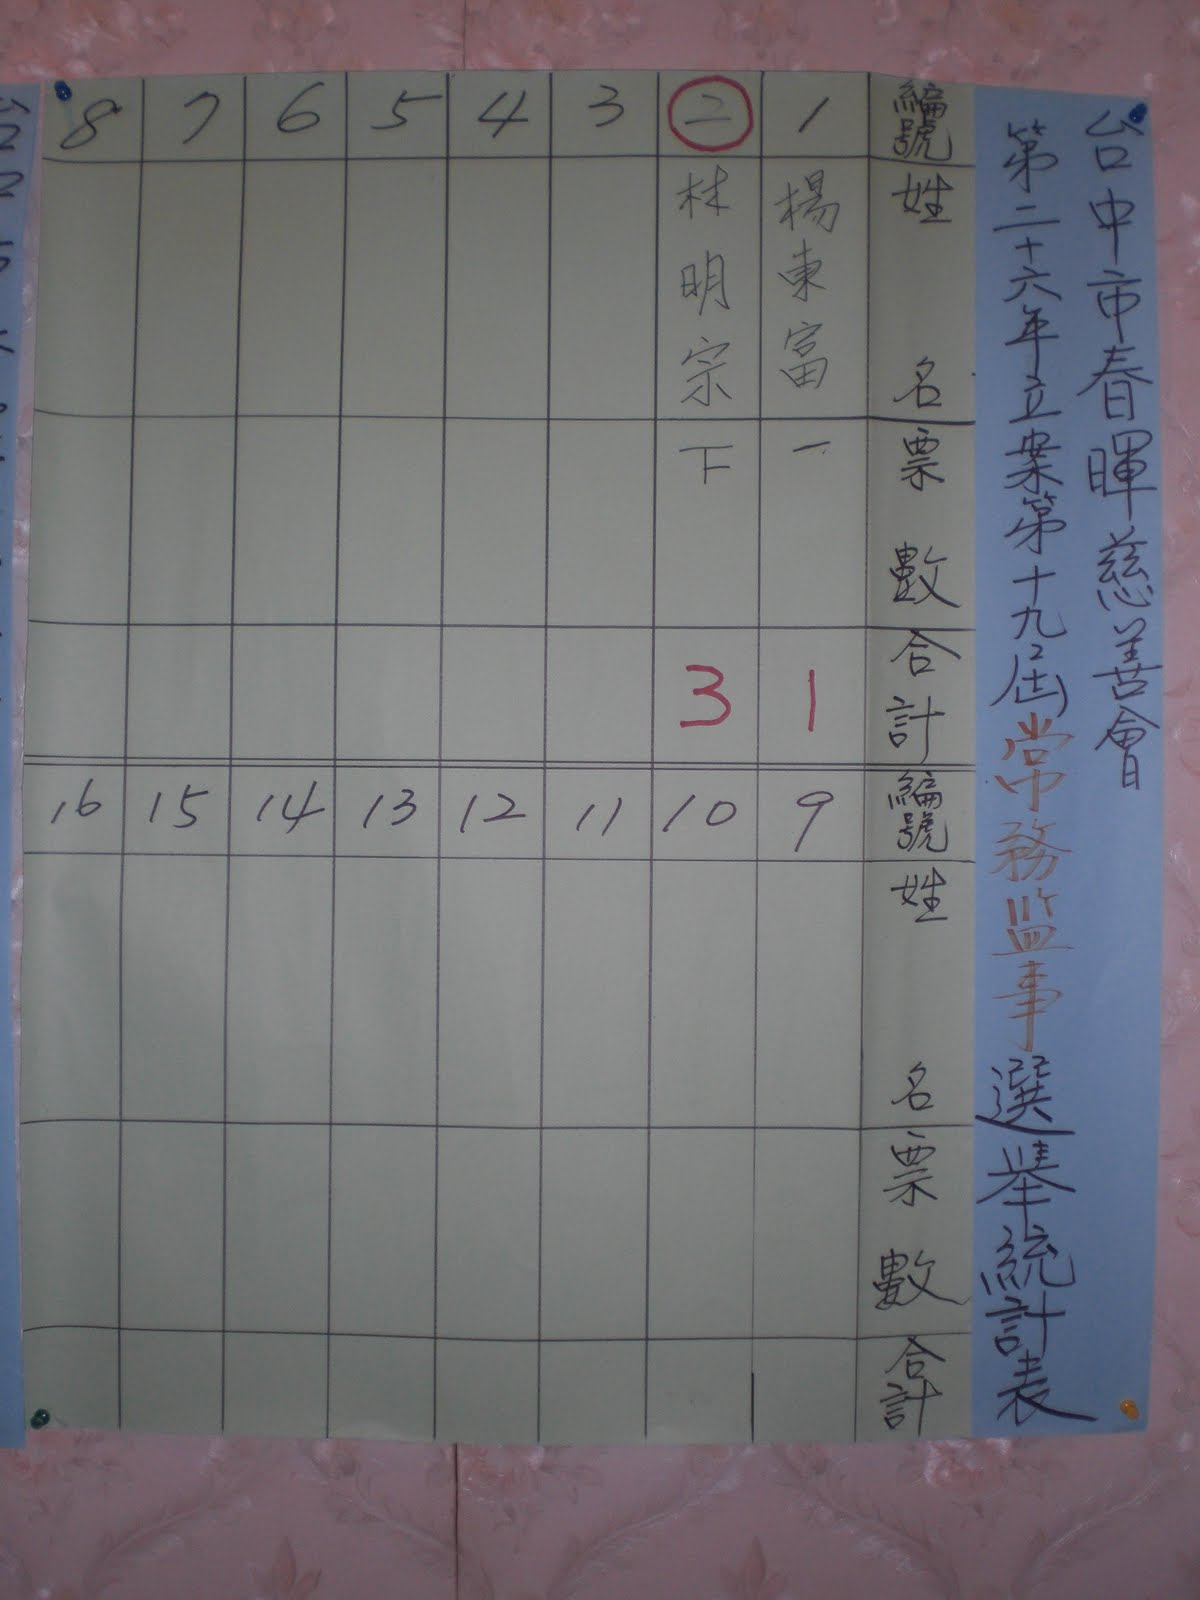 台中市春暉慈善會
第二十六年立案第十九屆常務监事選举統計表
編號 姓名 票數 合計 編號 姓名 票數 合計
1 楊東富 一 1 9
二 林明宗 下 3 10
3 11
4 12
5 13
6 14
7 15
8 16